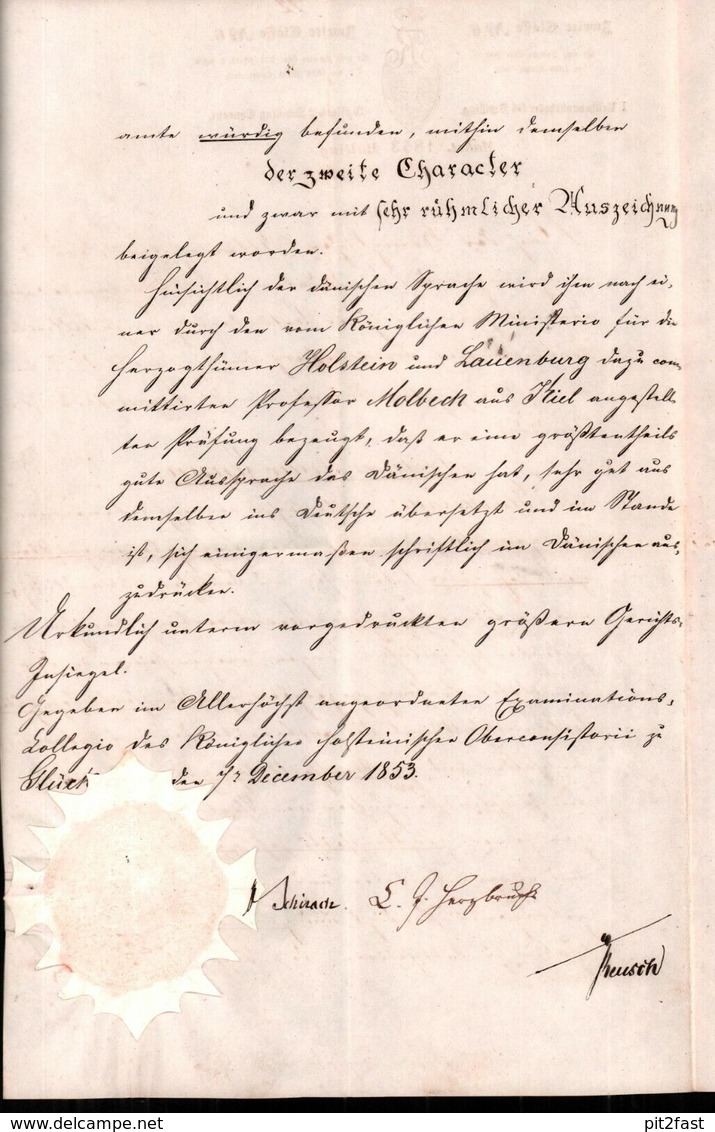 amte würdig befunden, mithin demselben
der zweite Character
und zwar mit sehr rühmlicher Auszeichnung
beigelegt worden.
Hinsichtlich der dänischen Sprache wird ihm nach ei-
ner durch den vom Königlichen Ministerio für die
Herzogthümer Holstein und Lauenburg dazu com-
mittirten Professor Molbech aus Kiel angestell-
ten Prüfung bezeugt, daß er eine größtentheils
gute Aussprache des Dänischen hat, sehr gut aus
demselben ins Deutsche übersetzt und im Stande
ist, sich einigermaßen schriftlich im Dänischen aus-
zudrücken.
Urkundlich unterm vorgedruckten größern Gerichts-
Insiegel.
Gegeben im Allerhöchst angeordneten Examinations-
Collegio des Königlichen Holsteinischen Oberconsistorii zu
Glück den 7t December 1853.
Schirach. Herzbruch
pit2fast